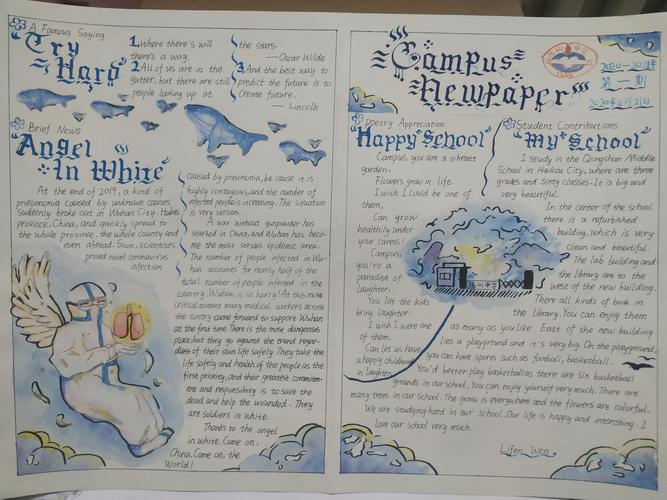 A Famous Saying
"Try
Hard"
1. Where there's will
there's a way.
2. All of us are in the
gutter, but there are still
people looking up at
the stars.
— Oscar Wilde
3. And the best way to
predict the future is to
Create future.
— Lincoln
Brief News
"Angel
In White"
At the end of 2019, a kind of
pneumonia caused by unknown causes
suddenly broke out in Wuhan City, Hubei
province, China, and quickly spread to
the whole province, the whole country and
even abroad. Soon, scientists
proved novel coronavirus
infection
caused by pneumonia, because it is
highly contagious, and the number of
infected people is increasing. The situation
is very serious.
A war without gunpowder has
started in China, and Wuhan has beco-
me the most serious epidemic area.
The number of people infected in Wu-
han accounts for nearly half of the
total number of people infected in the
country. Wuhan is in hurry! At this most
critical moment many medical workers across
the contry came forward to support Wuhan
at the first time. There is the most dangerous
place, but they go against the trend regar-
dless of their own life safely. They take the
life safely and health of the people as the
first priority, and their greatest commitm-
ent and responsibility is to save the
dead and help the wounded. They
are soldiers in white.
Thanks to the angel
in white. Come on,
China. Come on, the
World!
"Campus
Newpaper"
2020-2021年
第一期
2020年6月21日
Poetry Appreciation
"Happy School"
Campus, you are a vibrant
garden.
Flowers grow in life.
I wish I could be one of
them,
Can grow
healthily under
your caress!
Campus,
you're a
paradise of
laughter.
You let the kids
bring laughter.
I wish I were one
of them.
Can let us have
a happy childhood
in laughter.
Student Contributions
"My School"
I study in the Qiongshan Middle
School in Haikou City, where are three
grades and sixty classes. It is big and
very beautiful.
In the center of the school
there is a refurbished
building, which is very
clean and beautiful.
The lab building and
the library are to the
west of the new building.
There all kinds of book in
the library. You can enjoy them
as many as you like. East of the new building
lies a playground and it's very big. On the playground,
you can have spores such as football, basketball.
You'd better play basketball as there are six basketball
grounds in our school. You can enjoy yourself very much. There are
many trees in our school. The grass is everywhere and the flowers are colorful.
We are studying hard in our school. Our life is happy and interesting. I
love our school very much.
Lifen Wen